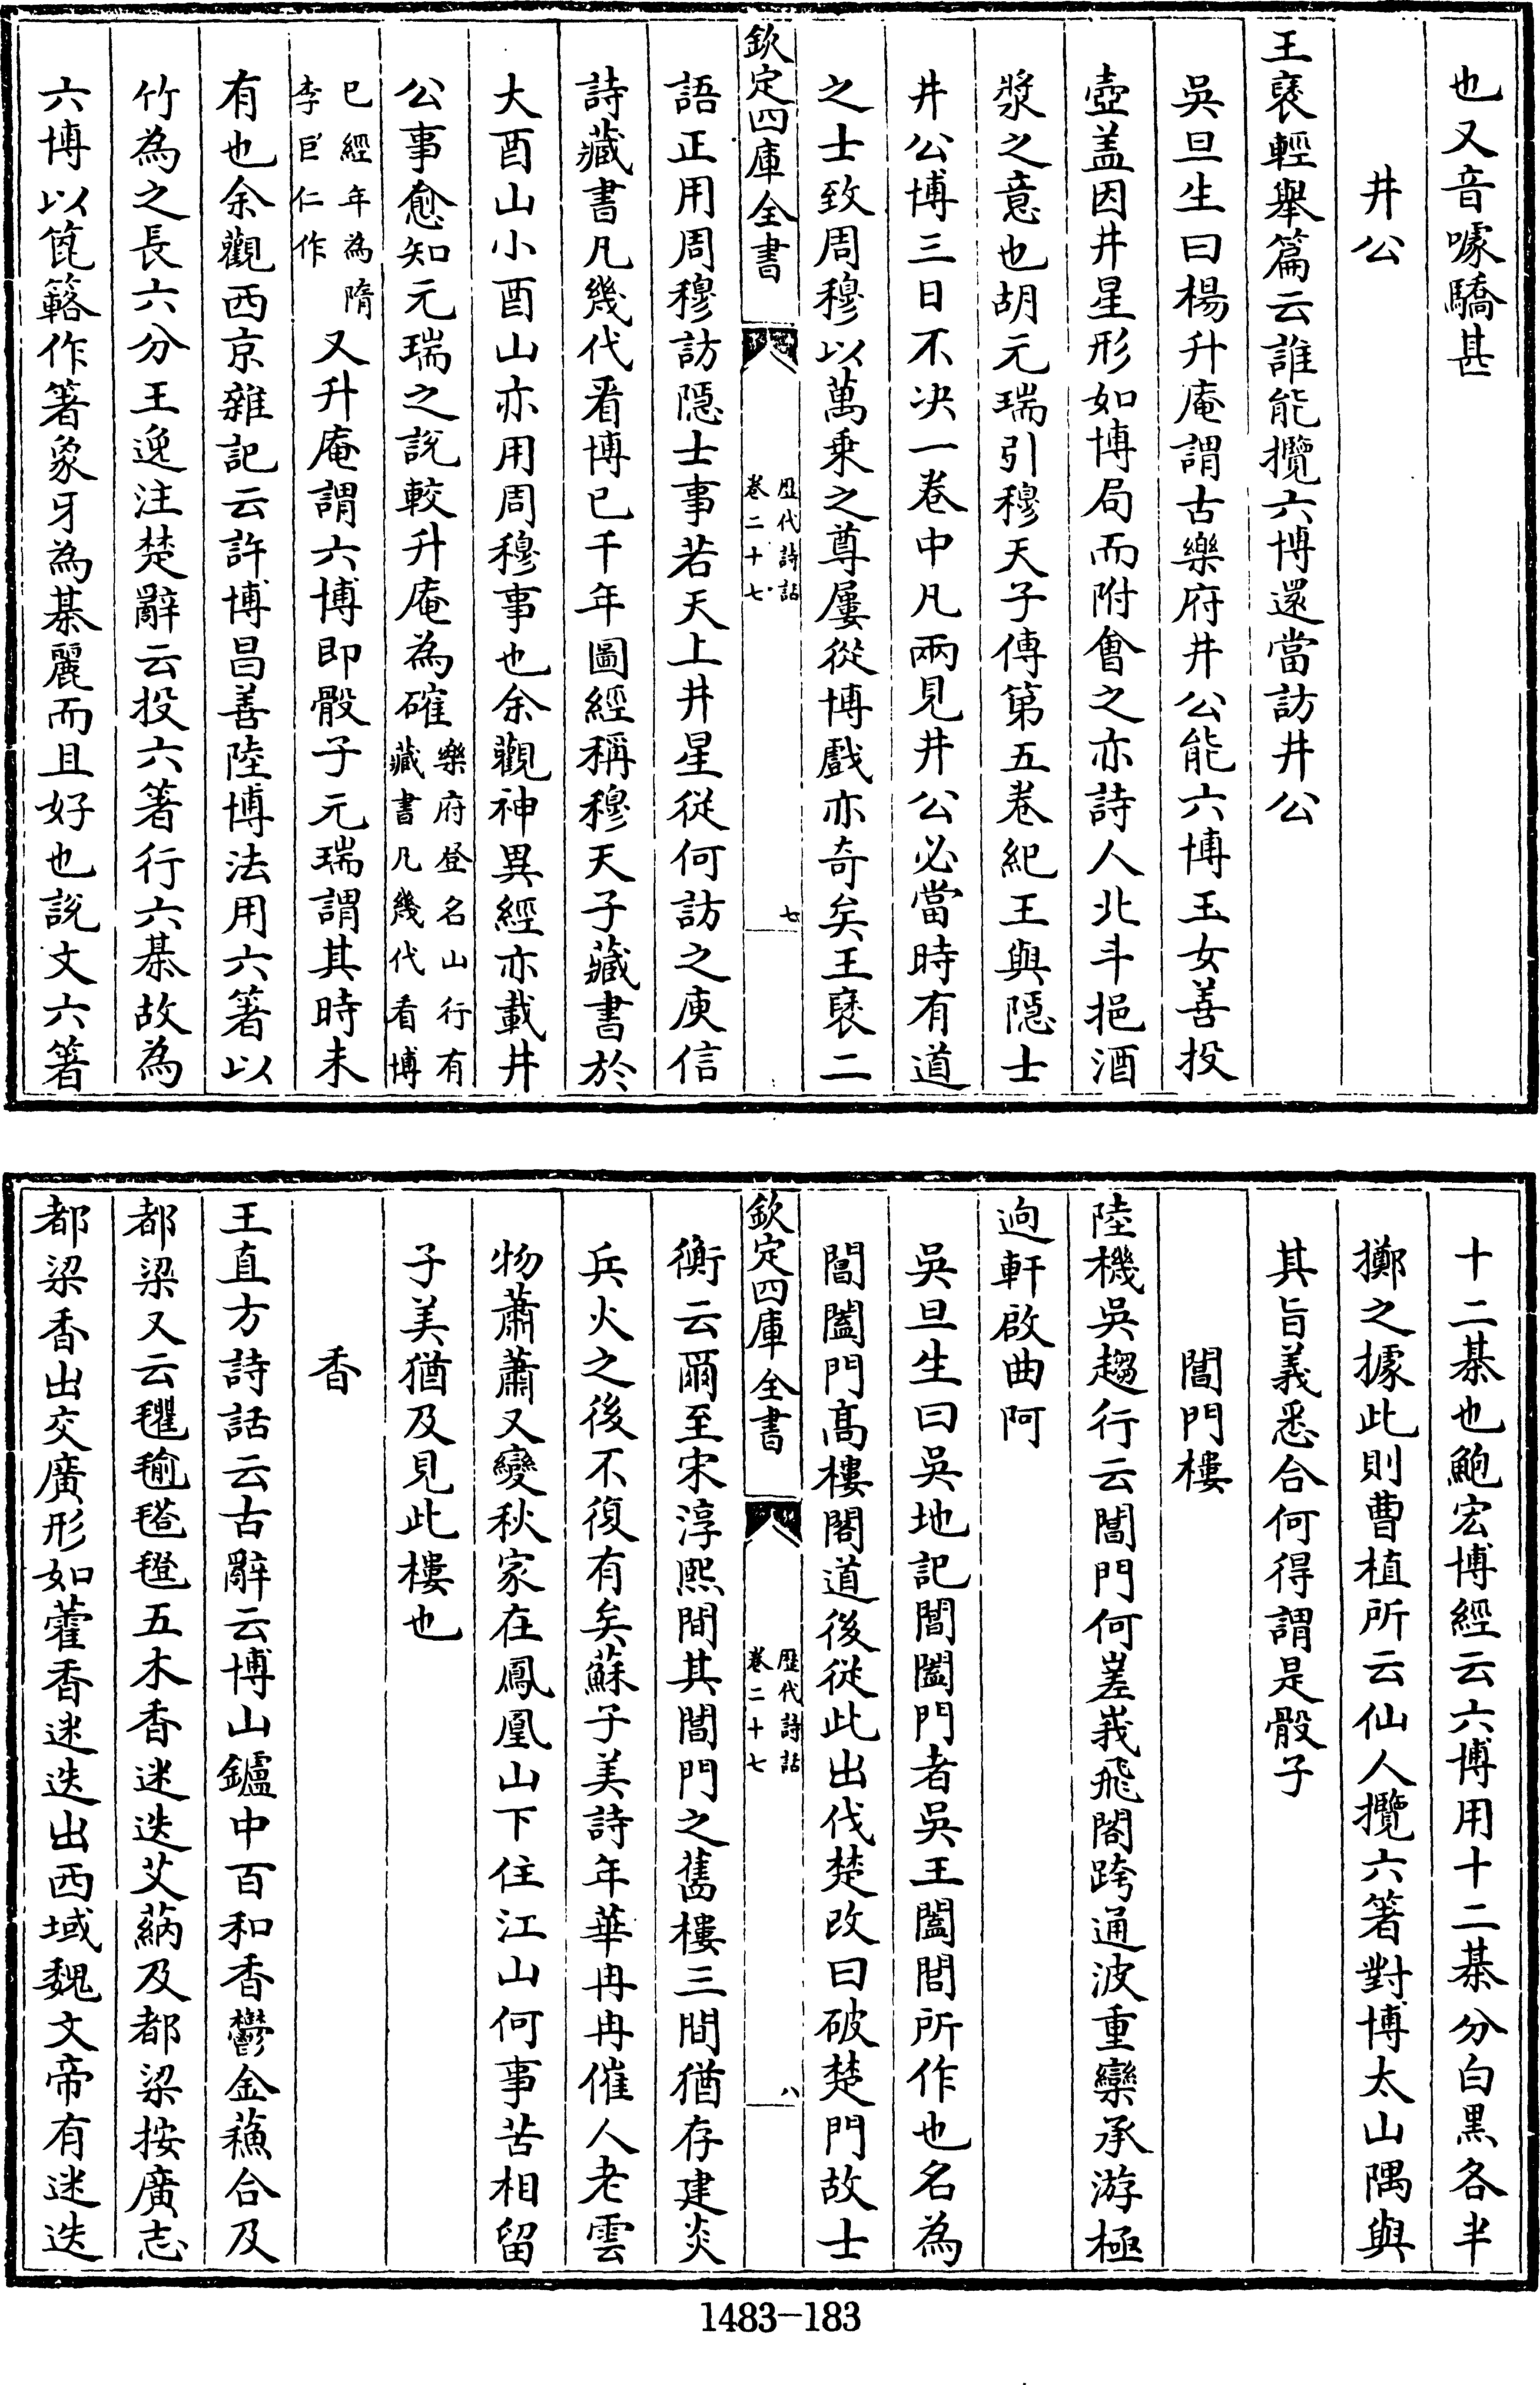 也又音噱驕甚
井公
王褒輕舉篇云誰能攬六博還當訪井公
吳旦生曰楊升庵謂古樂府井公能六博玉女善投
壺盖因井星形如博局而附會之亦詩人北斗挹酒
漿之意也胡元瑞引穆天子傳第五卷紀王與隱士
井公博三日不決一卷中凡兩見井公必當時有道
之士致周穆以萬乗之尊屢從博戲亦奇矣王褒二
欽定四庫全書
歴代詩話
卷二十七
七
語正用周穆訪隱士事若天上井星從何訪之庾信
詩藏書凡幾代看博已千年圖經稱穆天子藏書於
大酉山小酉山亦用周穆事也余觀神異經亦載井
公事愈知元瑞之說較升庵為確樂府登名山行有
藏書凡幾代看博
已經年為隋
李巨仁作
又升庵謂六博即骰子元瑞謂其時未
有也余觀西京雜記云許博昌善陸博法用六箸以
竹為之長六分王逸注楚辭云投六箸行六棊故為
六博以箆簬作箸象牙為棊麗而且好也說文六箸
十二棊也鮑宏博經云六博用十二棊分白黑各半
擲之據此則曹植所云仙人攬六箸對博太山隅與
其旨義悉合何得謂是骰子
閶門樓
陸機吳趨行云閶門何峩峩飛閣跨通波重欒承游極
逈軒啟曲阿
吳旦生曰吳地記閶闔門者吳王闔閭所作也名為
閶闔門髙樓閣道後從此出伐楚改曰破楚門故士
欽定四庫全書
歴代詩話
卷二十七
八
衡云爾至宋淳熙間其閶門之舊樓三間猶存建炎
兵火之後不復有矣蘇子美詩年華冉冉催人老雲
物蕭蕭又變秋家在鳳凰山下住江山何事苦相留
子美猶及見此樓也
香
王直方詩話云古辭云博山鑪中百和香鬱金蘓合及
都梁又云氍毹㲪㲪五木香迷迭艾蒳及都梁按廣志
都梁香出交廣形如藿香迷迭出西域魏文帝有迷迭
1483-183